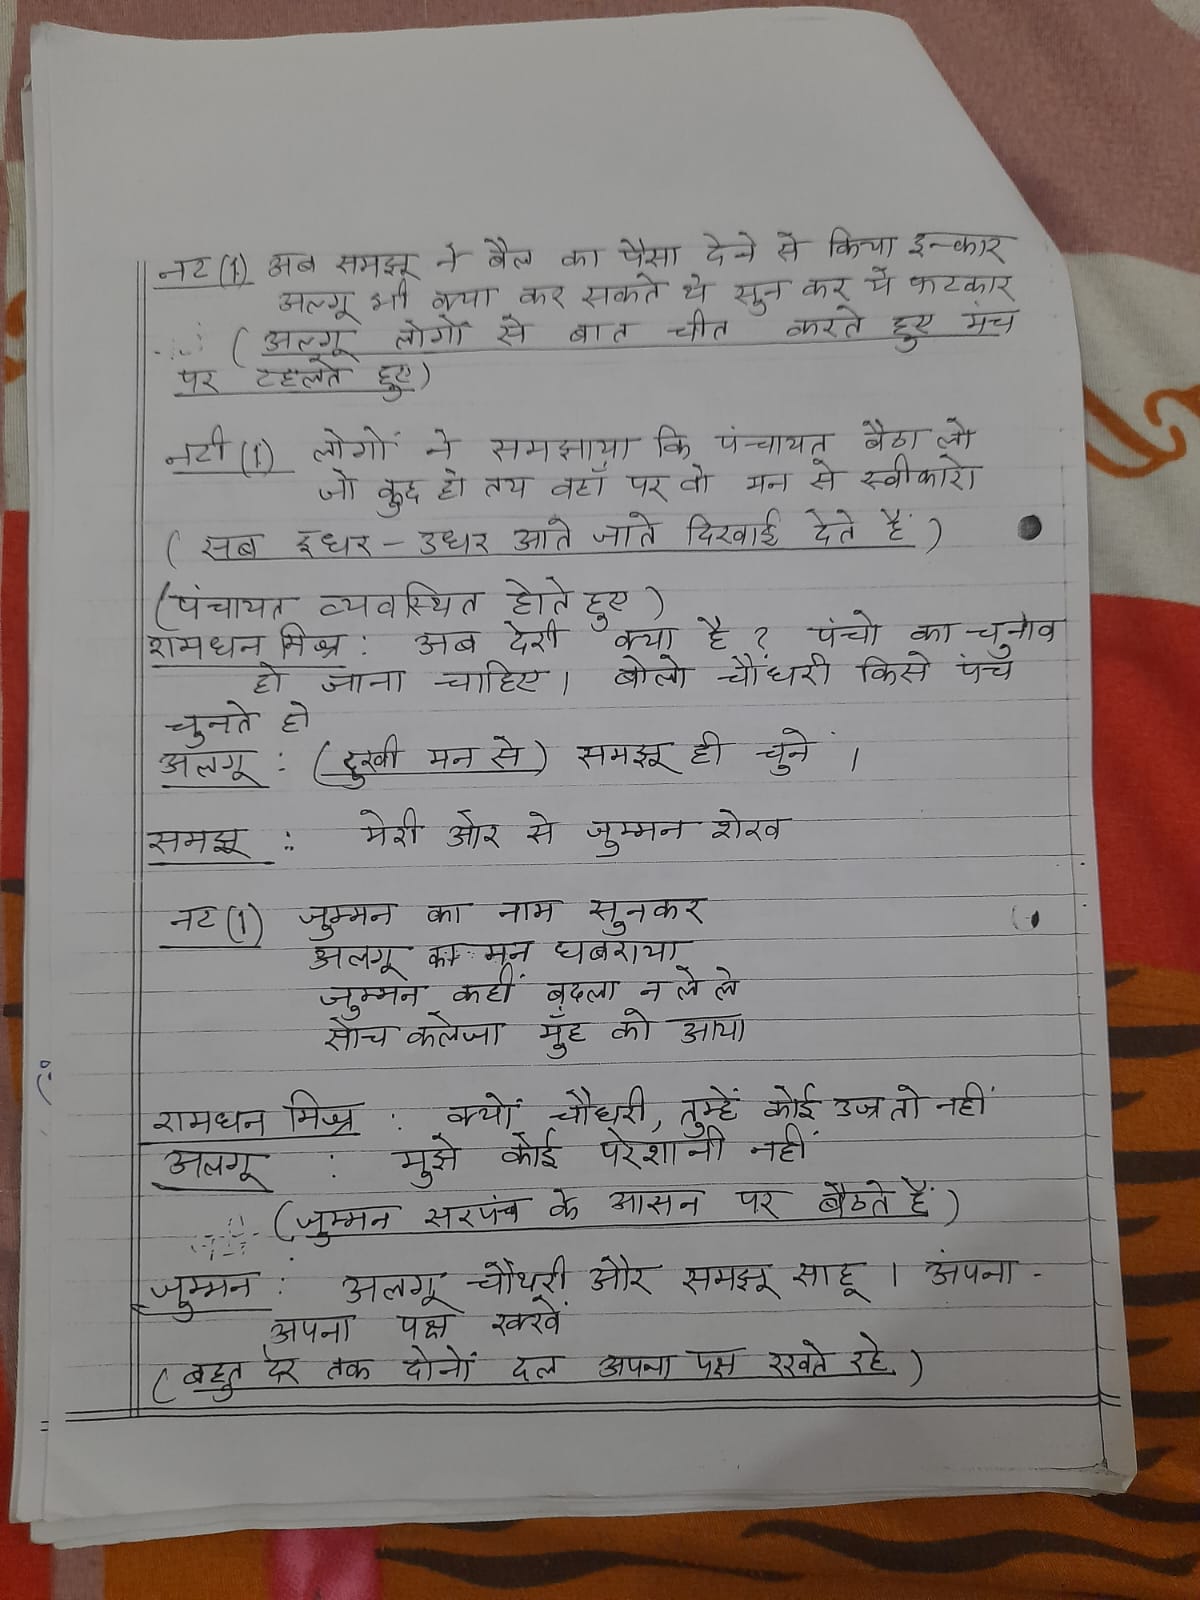 नट (1) अब समझू ने बैल का पैसा देने से किया इन्कार
अलगू भी क्या कर सकते थे सुन कर ये फटकार
( अलगू लोगों से बात चीत करते हुए मंच
पर टहलते हुए )
नटी (1) लोगों ने समझाया कि पंचायत बैठा लो
जो कुछ हो तय वहाँ पर वो मन से स्वीकारो
( सब इधर - उधर आते जाते दिखाई देते हैं )
( पंचायत व्यवस्थित होते हुए )
रामधन मिश्र : अब देरी क्या है ? पंचो का चुनाव
हो जाना चाहिए । बोलो चौधरी किसे पंच
चुनते हो
अलगू : ( दुखी मन से ) समझू ही चुने ।
समझू : मेरी ओर से जुम्मन शेख
नट (1) जुम्मन का नाम सुनकर
अलगू का मन घबराया
जुम्मन कहीं बदला न ले ले
सोच कलेजा मुँह को आया
रामधन मिश्र : क्यों चौधरी, तुम्हें कोई उज्र तो नहीं
अलगू : मुझे कोई परेशानी नहीं
( जुम्मन सरपंच के आसन पर बैठते हैं )
जुम्मन : अलगू चौधरी और समझू साहू । अपना -
अपना पक्ष रक्खें
( बहुत देर तक दोनों दल अपना पक्ष रखते रहे )